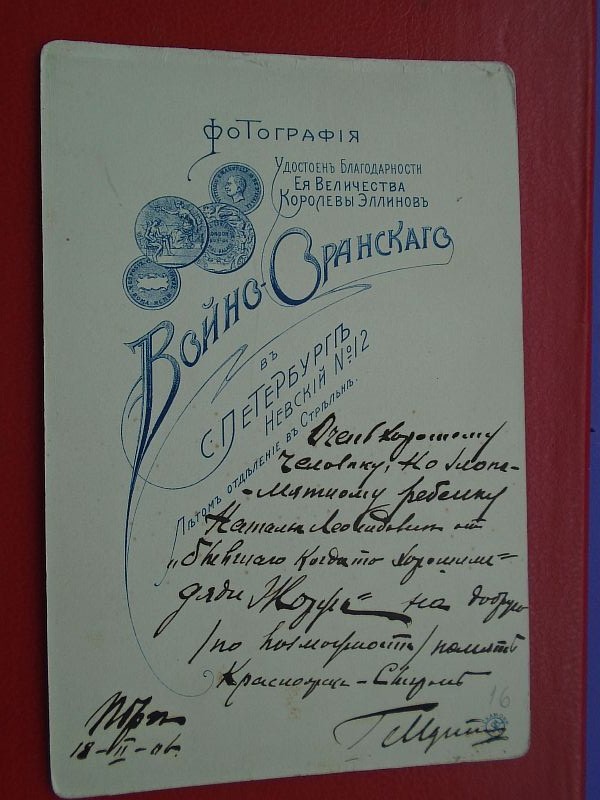 ФоТографія
Удостоенъ Благодарности
Ея Величества
Королевы Эллиновъ
Войно-Оранскаго
въ
С. Петербургѣ
Невскій № 12
Лѣтомъ отдѣленіе въ Стрѣльнѣ.
Очень хорошему
человѣку, но злопа-
-мятному ребенку
Леонидовнѣ от
„бывшаго когда то хорошимъ"
дяди на добрую
/по возможности/ память
18-II-06.
16